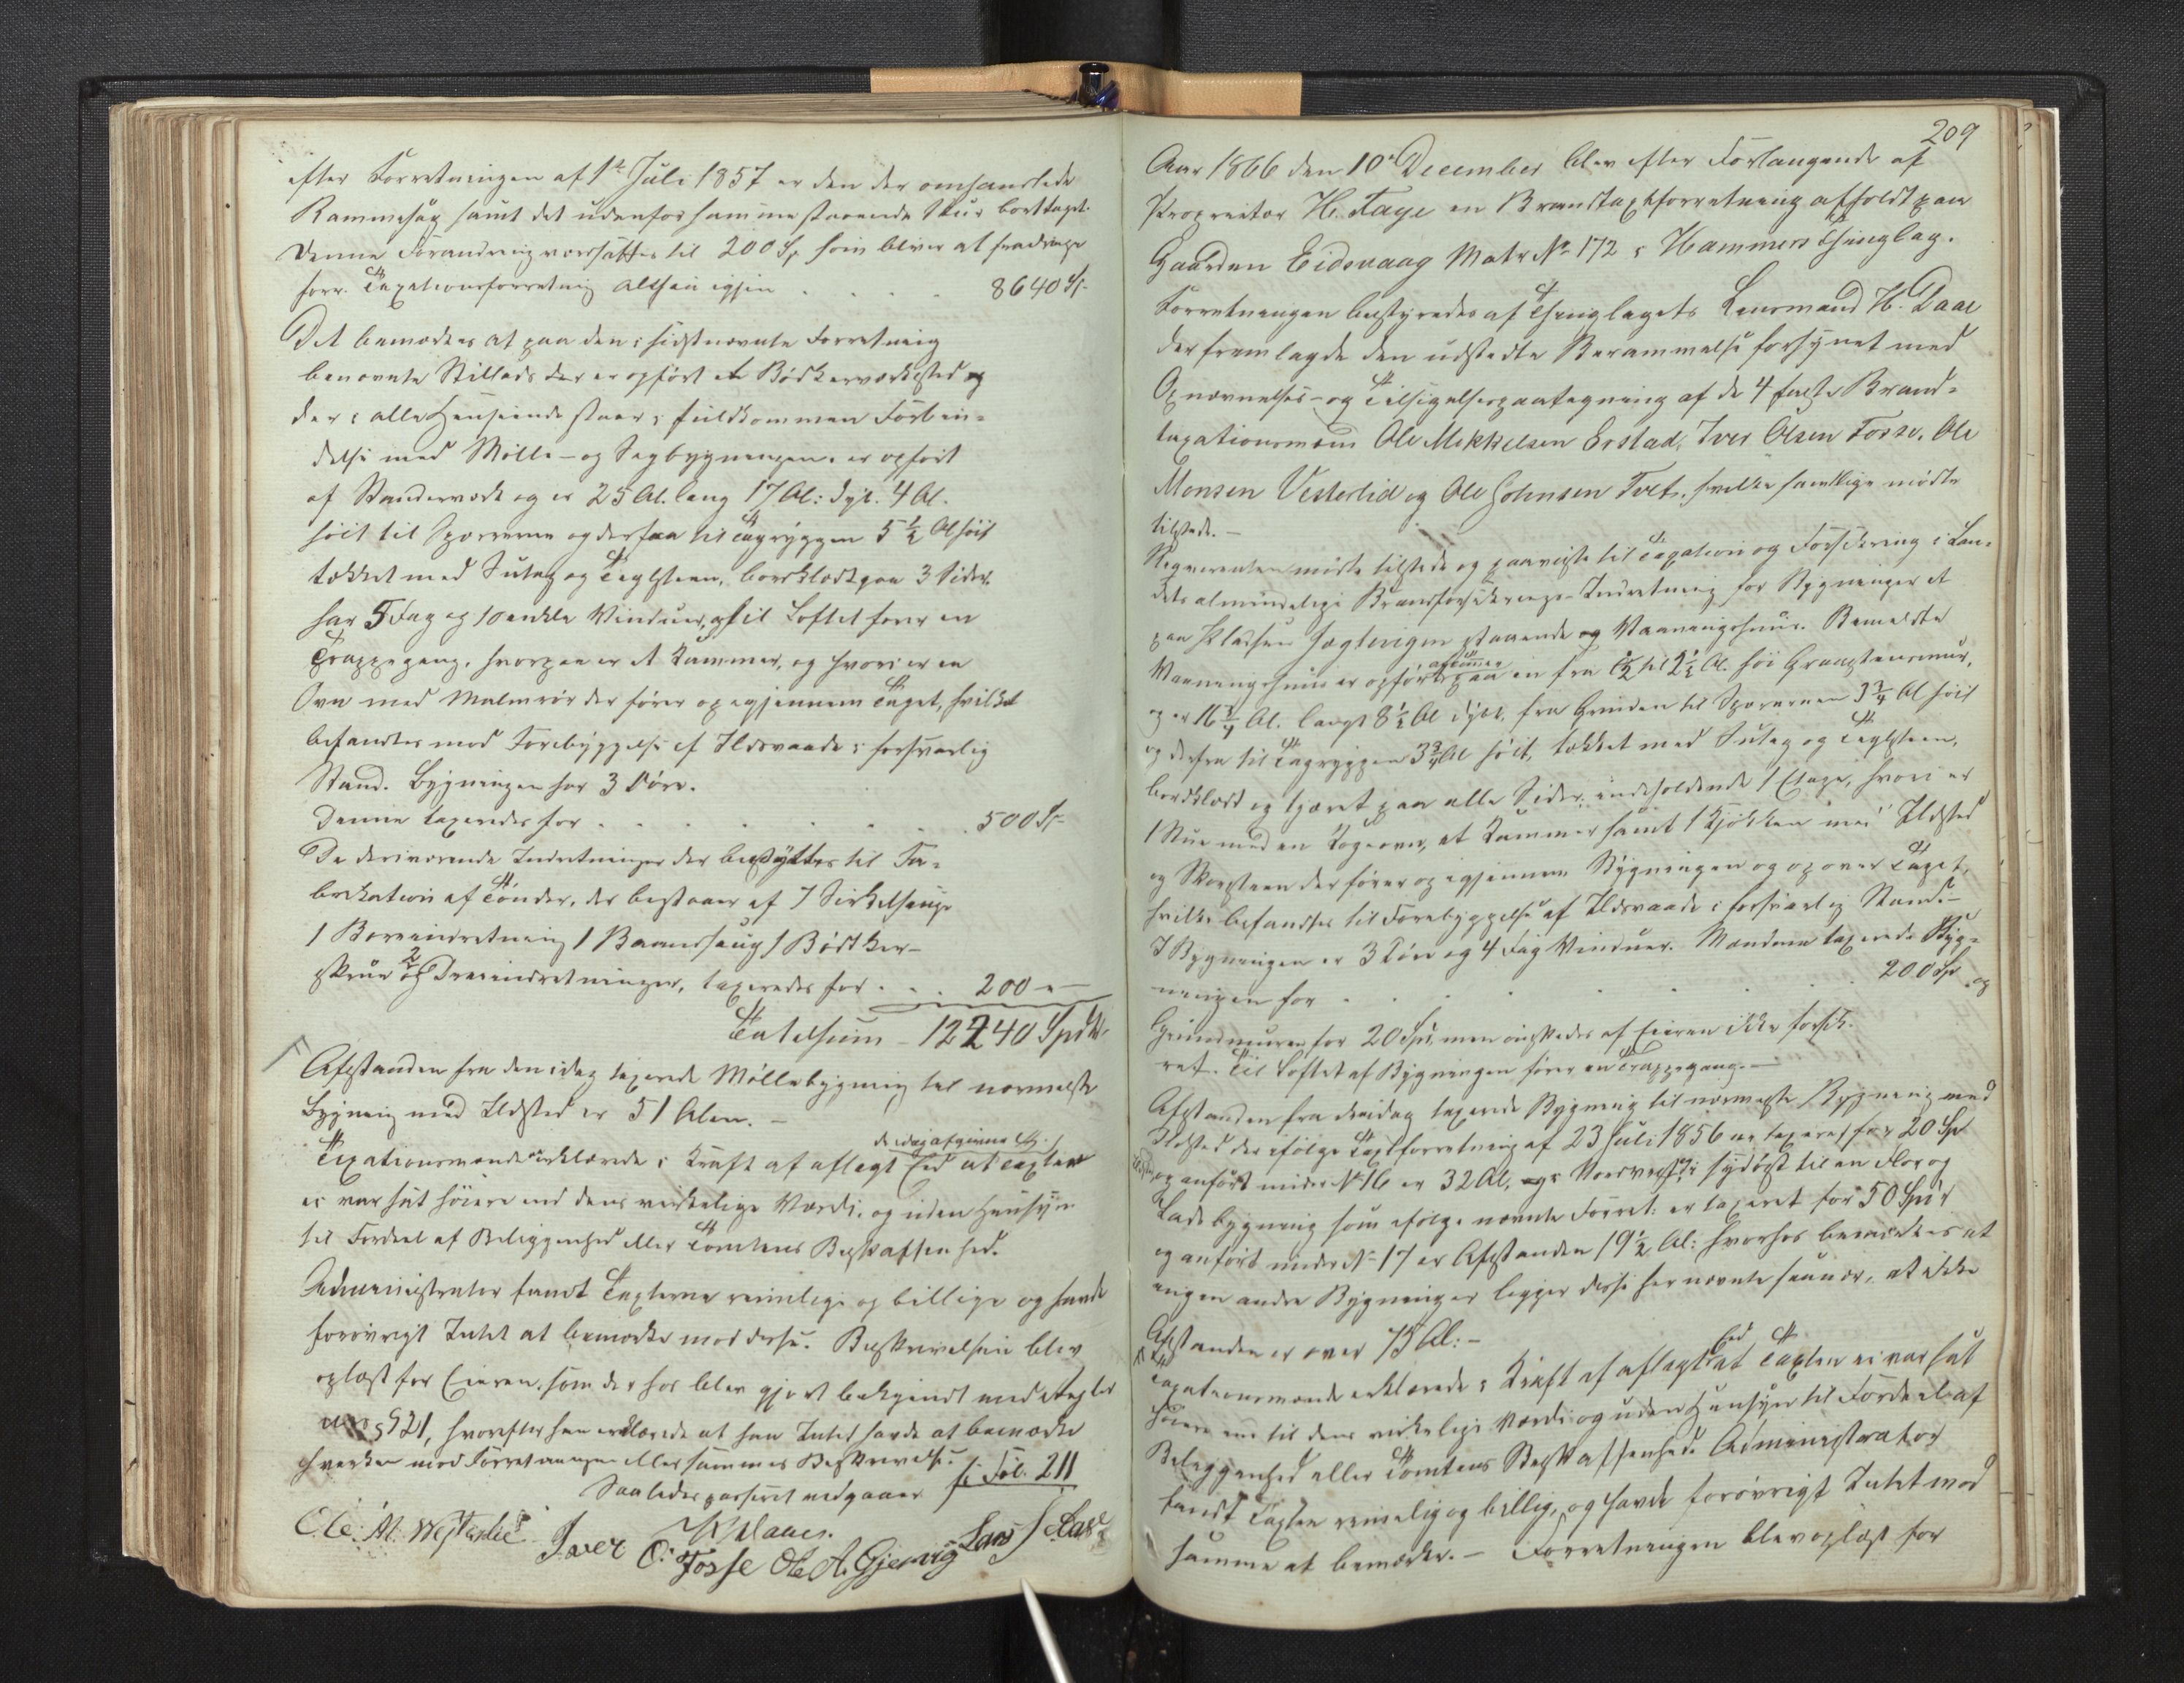 efter Forretningen af 1ste Juli 1857 er den der omhandlede
Rammesag samt det udenfor samme staaende Skur borttaget.
Denne Forandring ansættes til 200 Sp som bliver at fradrage
forr. Taxationsforretning altsaa igjen . . . . 8640 Sp
Det bemærkes at paa den i sidstnævnte Forretning
benævnte Stillads der er opført et Bødkerværksted og
der i alle Henseende staaer i fuldkommen Forbin-
delse med Mølle- og Sagbygningen, er opført
af Standerværk og er 25 Al. lang 17 Al: dyb. 4 Al.
høit til Sparrerne og derfra til Tagryggen 5 1/2 Al høit
tækket med Sutag og Taglsteen, bordklædt paa 3 Sider
har 5 Fag og 10 enkle Vinduer, og til Loftet fører en
Trappegang, hvorpaa er et Kammer, og hvori er en
Ovn med Malmrør der fører op igjennem Taget, hvilket
befandtes med Forebyggelse af Ildsvaade i forsvarlig
Stand. Bygningen har 3 Døre.
Denne taxeredes for . . . . . . 500 Sp
De deriværende Indretninger der benyttes til Fa-
brikation af Tønder, der bestaaer af 7 Sirkelsauge
1 Boreindretning 1 Baandsaug 1 Bødker-
skrue og 2 Dreieindretninger, taxeredes for . . . 200 "-
Totalsum - 12240 Spd
Afstanden fra den idag taxerede Møllebygning til nærmeste
Bygning med Ildsted er 51 Alen. -
Taxationsmændene erklærede i Kraft af aflagt Ed at Taxten
ei var sat høiere end dens virkelige Værdi, og uden Hensyn
til Fordeel af Beliggenhed eller Tomtens Beskaffenhed.
Administrator fandt Taxterne rimelige og billige og havde
forøvrigt Intet at bemærke mod disse. Beskrivelsen blev
oplæst for Eieren, som derhos blev gjort bekjendt med Regler
ne i § 21, hvorefter han erklærede at han Intet havde at bemærke
hverken mod Forretningen eller sammes Beskrivelse.
Saaledes passeret medgaaer se Fol. 211
H Daae.
Ole: M: Westerlid Iver O: Fosse Ole A. Gjervig Lars
209
Aar 1866 den 10de December blev efter Forlangende af
Proprietær H. Faye en Brandtaxtforretning afholdt paa
Gaarden Eidsvaag Matr No 172 i Hammers Thinglag.
Forretningen bestyredes af Thinglagets Lensmand H. Daae
der fremlagde den udstedte Berammelse forsynet med
Opnævnelses- og Tilsigelsespaategning af de 4 faste Brand-
taxationsmænd Ole Mikkelsen Erstad, Iver Olsen Fosse, Ole
Monsen Vesterlid og Ole Johnsen Tvet, hvilke samtlige mødte
tilstede. -
Reqvirenten mødte tilstede og paaviste til Taxation og Forsikring i Lan-
dets almindelige Brandforsikrings-Indretning for Bygninger et
paa Pladsen Jægtevigen staaende Vaaningshuus. Bemeldte
Vaaningshuus er opført af Tømmer paa en fra 1/2 til 2 1/2 Al. høi Graastensmuur,
og er 16 3/4 Al. langt 8 1/2 Al dybt, fra Grunden til Sparrerne 3 3/4 Al høit
og derfra til Tagryggen 3 3/4 Al høit, tækket med Sutag og Taglsteen,
bordklædt og tjæret paa alle Sider, indeholdende 1 Etage, hvori er
1 Stue med en Kogeovn, et Kammer samt 1 Kjøkken med Ildsted
og Skorsteen der fører op igjennem Bygningen og op over Taget,
hvilke befandtes til Forebyggelse af Ildsvaade i forsvarlig Stand. -
I Bygningen er 3 Døre og 4 Fag Vinduer. Mændene taxerede Byg-
ningen for . . . . . . 200 Sp og
Grundmuren for 20 Sp, men ønskedes af Eieren ikke forsik-
ret. Til Loftet af Bygningen fører en Trappegang. -
Afstanden fra den idag taxerede Bygning til nærmeste Bygning med
Ildsted der ifølge Taxtforretning af 23 Juli 1856 er taxeret for 20 Sp
og anført under No 16 er 32 Al, i sydøst til en Flor og
Ladebygning som ifølge nævnte Forret: er taxeret for 50 Spd
og anført under No 17 er Afstanden 19 1/2 Al: hvorhos bemærkes at
ingen andre Bygninger ligger disse her nævnte saa nær, at ikke
Afstanden er over 75 Al: -
Taxationsmændene erklærede i Kraft af aflagt Ed at Taxten ei var sat
høiere end til dens virkelige Værdi og uden Hensyn til Fordeel af
Beliggenhed eller Tomtens Beskaffenhed. Administrator
fandt Taxten rimelig og billig, og havde forøvrigt Intet mod
samme at bemærke. - Forretningen blev oplæst for